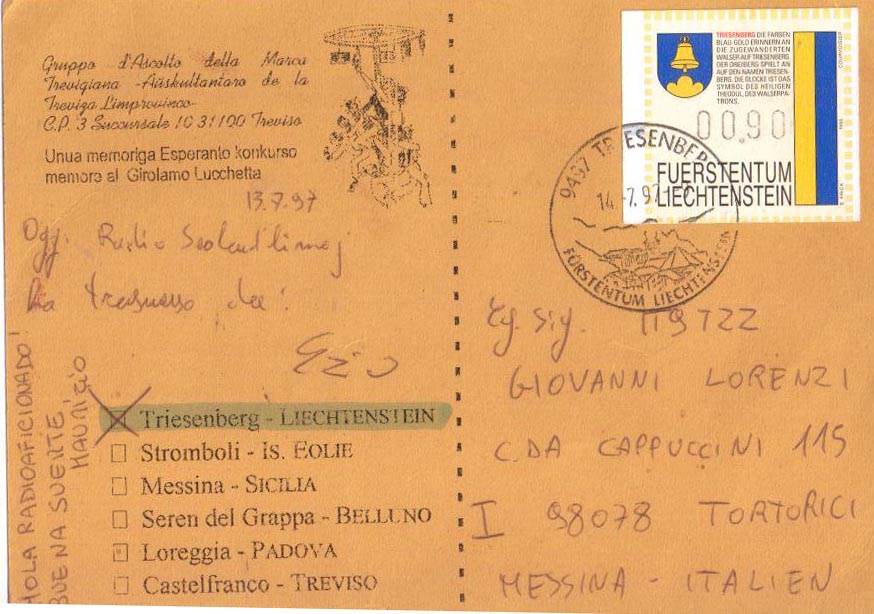 Gruppo d'Ascolto della Marca
Trevigiana - Aŭskultantaro de la
Treviza Limprovinco-
C.P. 3 Succursale 10 31100 Treviso
Unua memoriga Esperanto konkurso
memore al Girolamo Lucchetta
13.7.97
Oggi Radio
ha trasmesso da:
Ezio
HOLA RADIOAFICIONADO!
BUENA SUERTE
MAURIZIO
Triesenberg - LIECHTENSTEIN
Stromboli - IS. EOLIE
Messina - SICILIA
Seren del Grappa - BELLUNO
Loreggia - PADOVA
Castelfranco - TREVISO
TRIESENBERG DIE FARBEN
BLAU-GOLD ERINNERN AN
DIE ZUGEWANDERTEN
WALSER AUF TRIESENBERG.
DER DREIBERG SPIELT AN
AUF DEN NAMEN TRIESEN-
BERG. DIE GLOCKE IST DAS
SYMBOL DES HEILIGEN
THEODUL, DES WALSERPA-
TRONS.
00.90
FUERSTENTUM
LIECHTENSTEIN
COURVOISIER
1995
9497 TRIESENBERG
14.-7.97
FÜRSTENTUM LIECHTENSTEIN
Eg. Sig.
GIOVANNI LORENZI
C.DA CAPPUCCINI 115
I 98078 TORTORICI
MESSINA - ITALIEN